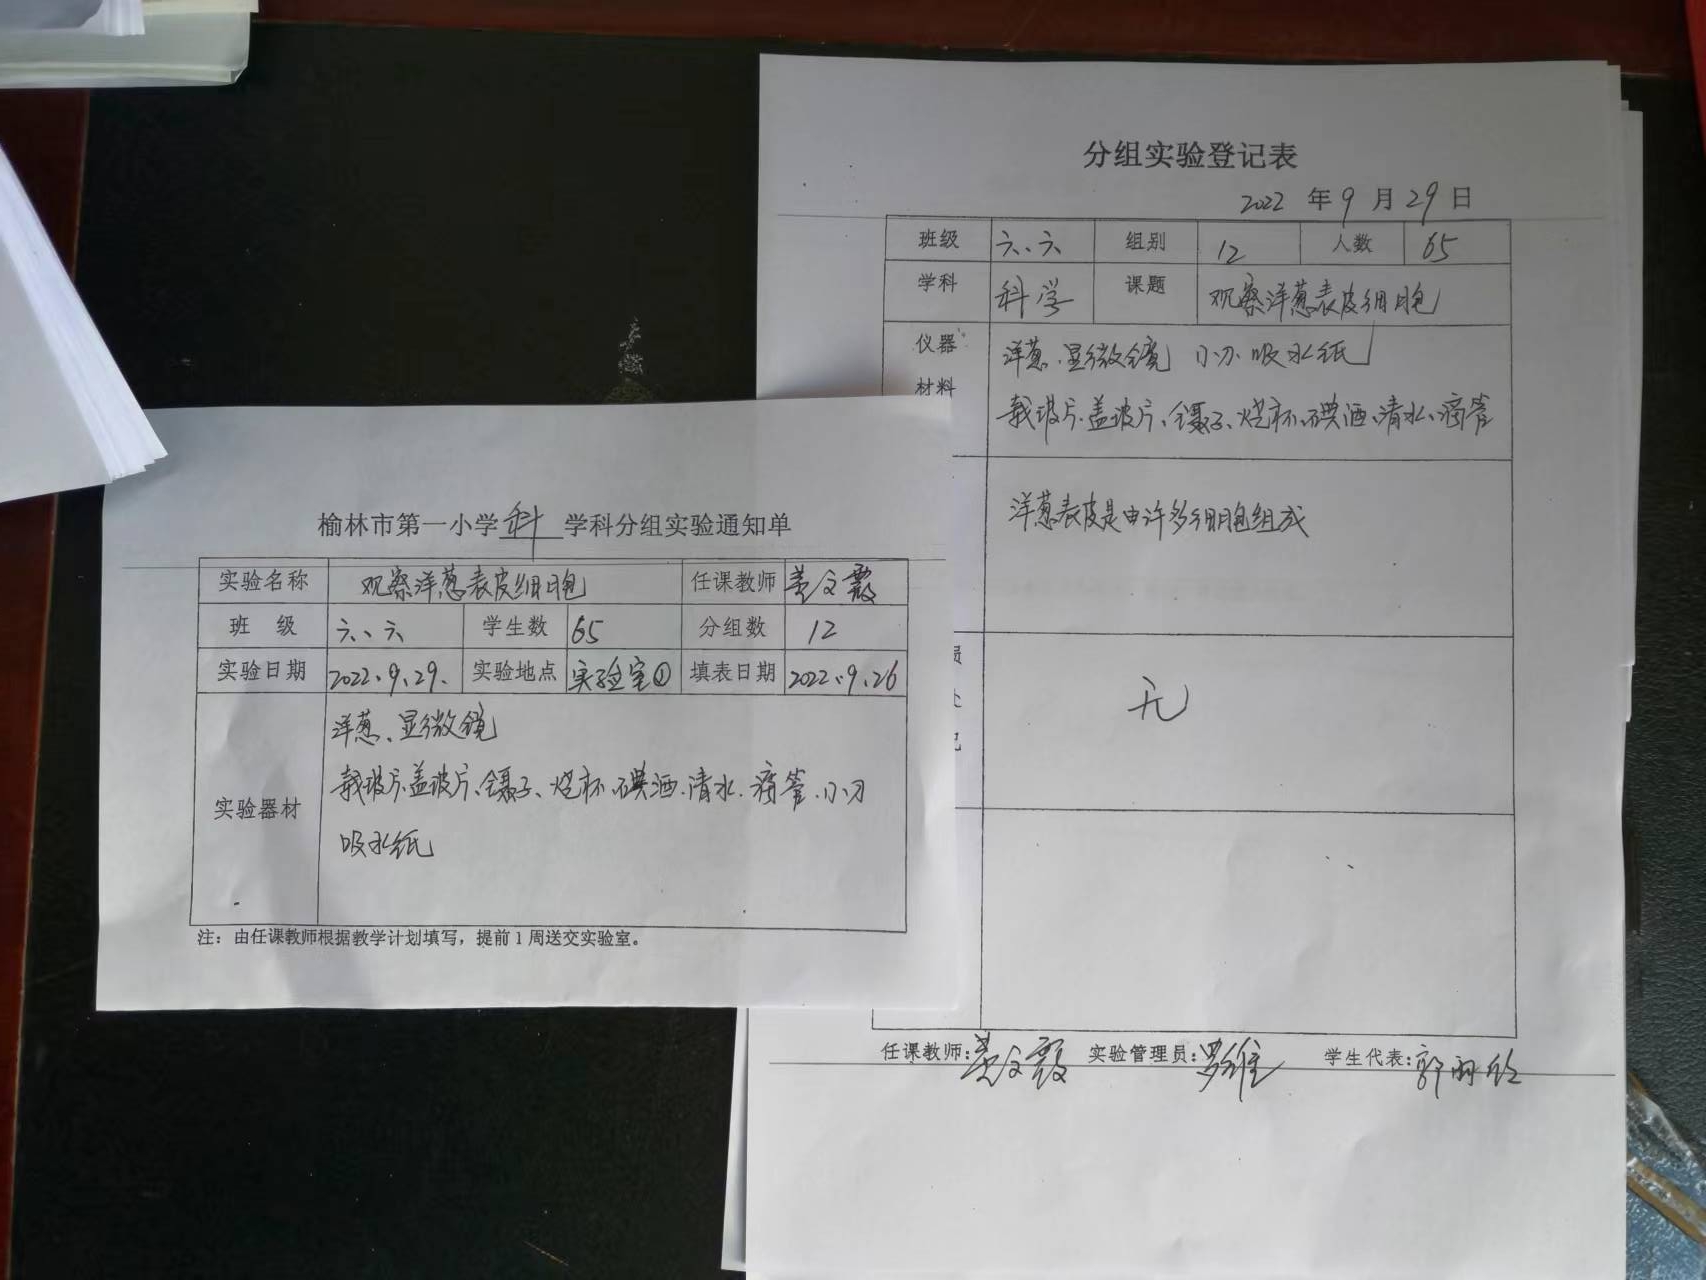 分组实验登记表
2022 年 9 月 29 日
班级 六、六 组别 12 人数 65
学科 科学 课题 观察洋葱表皮细胞
仪器 洋葱、显微镜 小刀、吸水纸
材料 载玻片、盖玻片、镊子、烧杯、碘酒、清水、滴管
洋葱表皮是由许多细胞组成
无
任课教师:姜文霞 实验管理员:罗维 学生代表:郭
榆林市第一小学 科 学科分组实验通知单
实验名称 观察洋葱表皮细胞 任课教师 姜文霞
班 级 六、六 学生数 65 分组数 12
实验日期 2022、9、29、 实验地点 实验室① 填表日期 2022、9、26
洋葱、显微镜
实验器材 载玻片、盖玻片、镊子、烧杯、碘酒、清水、滴管、小刀
吸水纸
注：由任课教师根据教学计划填写，提前1周送交实验室。